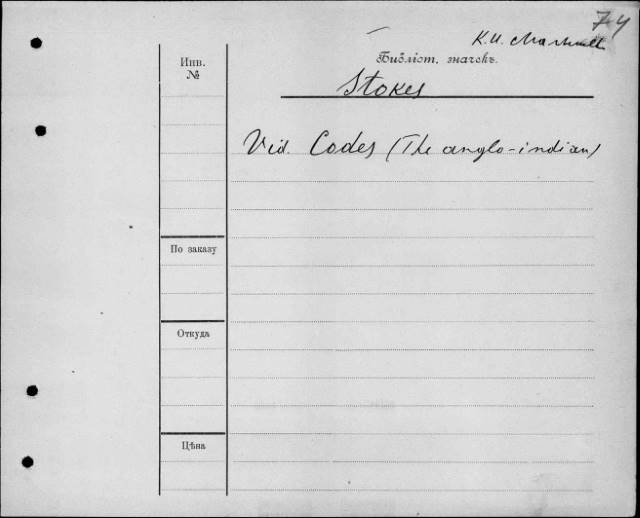 74
Библіот. значекъ.
Stokes
Инв.
№
Vid. Codes (The anglo-indian)
По заказу
Откуда
Цѣна